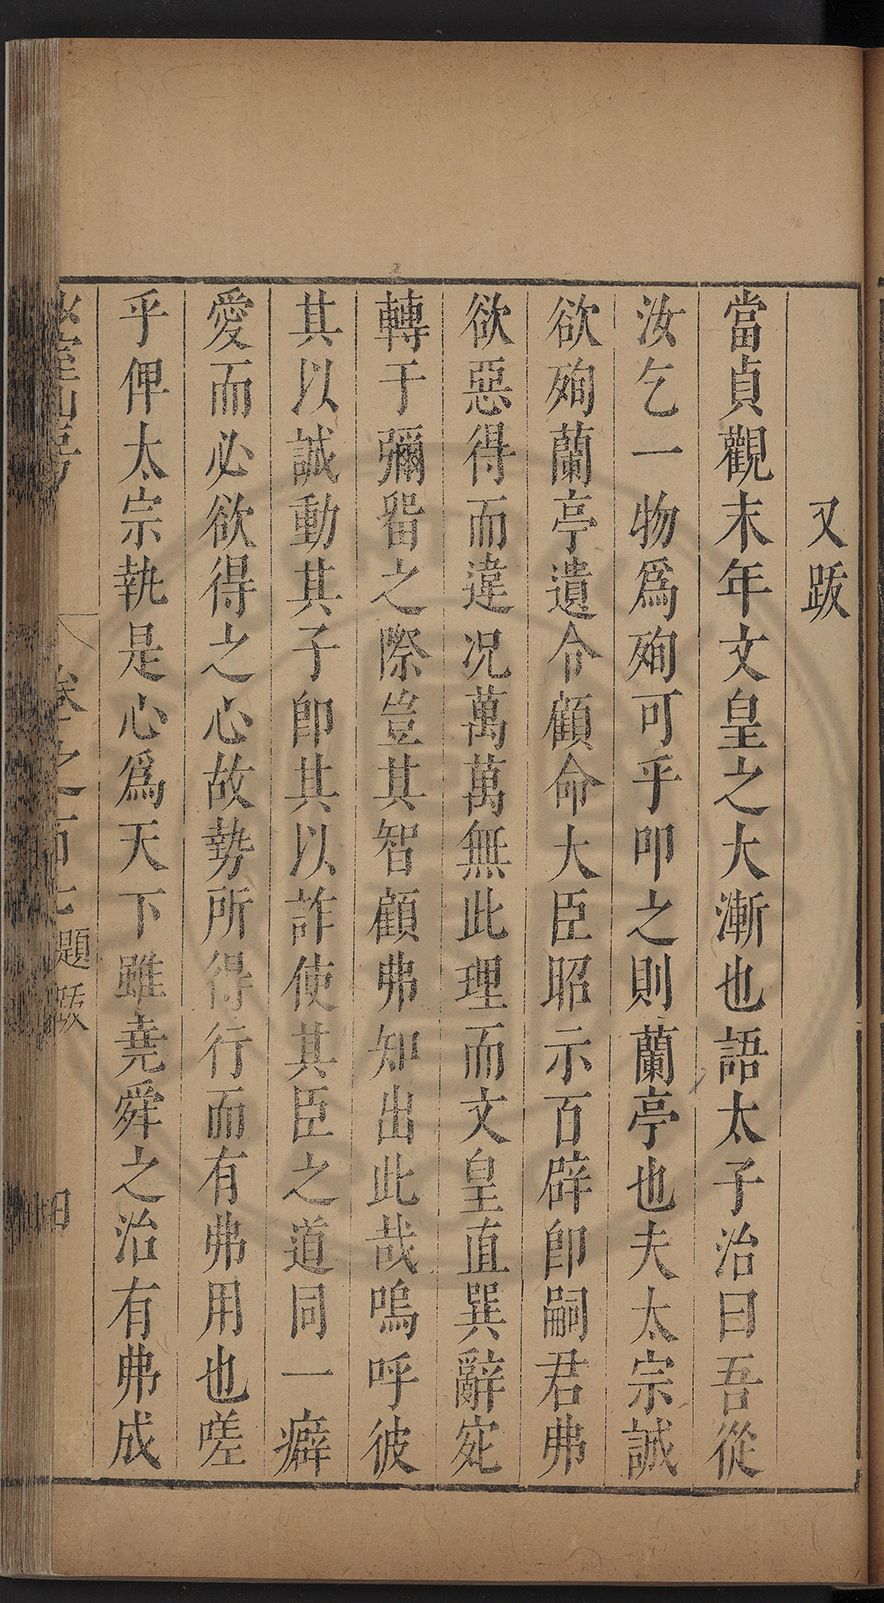 又跋
當貞觀末年文皇之大漸也語太子治曰吾從
汝乞一物爲殉可乎叩之則蘭亭也夫太宗誠
欲殉蘭亭遺令顧命大臣昭示百辟卽嗣君弗
欲惡得而違况萬萬無此理而文皇直巽辭宛
轉于彌留之際豈其智顧弗知出此哉嗚呼彼
其以誠動其子卽其以詐使其臣之道同一癖
愛而必欲得之心故勢所得行而有弗用也嗟
乎俾太宗執是心爲天下雖堯舜之治有弗成
室山房 卷之百七 題跋 四